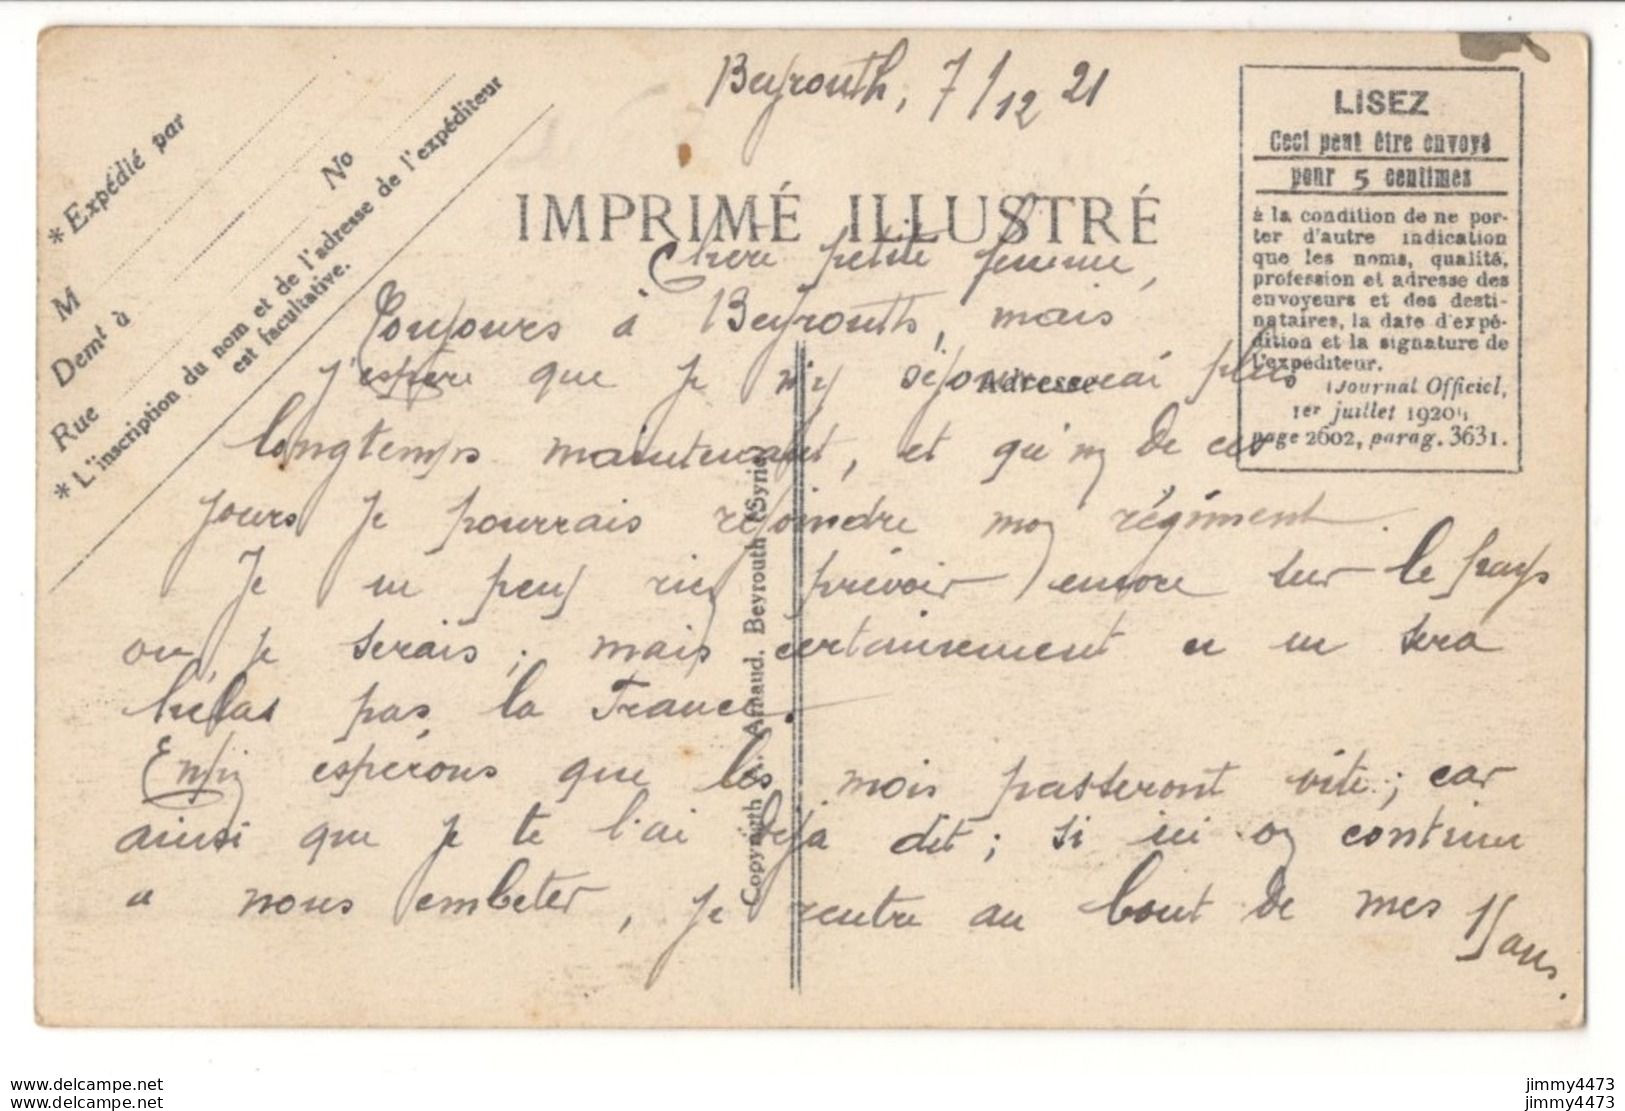 Beyrouth, 7/12 21
* Expédié par
No
M
Demt à
Rue
* L'inscription du nom et de l'adresse de l'expéditeur
est facultative.
IMPRIMÉ ILLUSTRÉ
LISEZ
Ceci peut être envoyé
pour 5 centimes
à la condition de ne por-
ter d'autre indication
que les noms, qualité,
profession et adresse des
envoyeurs et des desti-
nataires, la date d'expé-
dition et la signature de
l'expéditeur.
(Journal Officiel,
1er juillet 1920)
page 2602, parag. 3631.
Adresse
Chère petite femme,
Toujours à Beyrouth, mais
j'espère que je n'y séjournerai plus
longtemps maintenant, et qu'en de ces
jours je pourrais rejoindre mon régiment.
Je ne peux rien prévoir encore sur le pays
ou je serais; mais certainement ce ne sera
hélas pas la France.
Enfin espérons que les mois passeront vite; car
ainsi que je te l'ai déjà dit; si ici on continue
a nous embeter, je rentre au bout de mes 15 ans.
Copyright Arnaud. Beyrouth (Syrie)
www.delcampe.net
www.delcampe.net
jimmy4473
jimmy4473